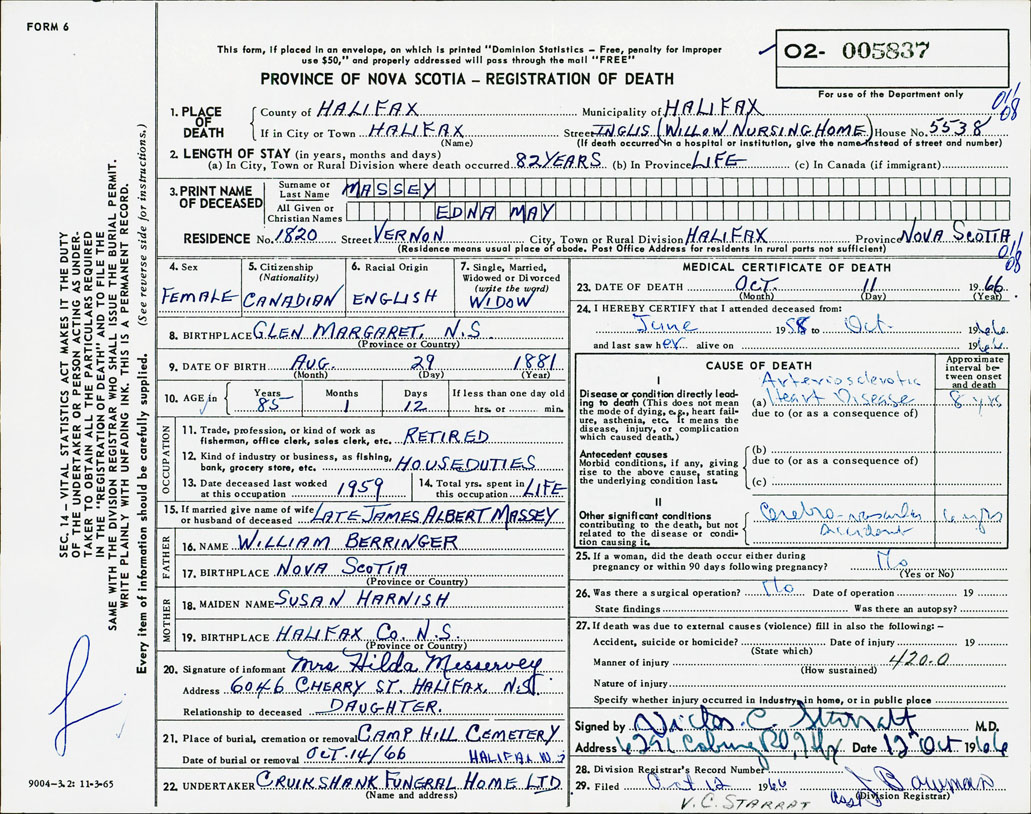 FORM 6
This form, if placed in an envelope, on which is printed "Dominion Statistics – Free, penalty for improper
use $50," and properly addressed will pass through the mail "FREE"
02- 005837
PROVINCE OF NOVA SCOTIA – REGISTRATION OF DEATH
For use of the Department only
1. PLACE OF DEATH
County of HALIFAX Municipality of HALIFAX
If in City or Town HALIFAX Street INGLIS (WILLOW NURSING HOME) House No. 5538
(Name) (If death occurred in a hospital or institution, give the name instead of street and number)
2. LENGTH OF STAY (in years, months and days)
(a) In City, Town or Rural Division where death occurred 82 YEARS (b) In Province LIFE (c) In Canada (if immigrant)
3. PRINT NAME OF DECEASED
Surname or Last Name MASSEY
All Given or Christian Names EDNA MAY
RESIDENCE No. 1820 Street VERNON City, Town or Rural Division HALIFAX Province NOVA SCOTIA
(Residence means usual place of abode. Post Office Address for residents in rural parts not sufficient)
4. Sex FEMALE
5. Citizenship (Nationality) CANADIAN
6. Racial Origin ENGLISH
7. Single, Married, Widowed or Divorced (write the word) WIDOW
8. BIRTHPLACE GLEN MARGARET, N.S.
(Province or Country)
9. DATE OF BIRTH AUG. 29 1881
(Month) (Day) (Year)
10. AGE in Years 85 Months 1 Days 12 If less than one day old
hrs. or min.
OCCUPATION
11. Trade, profession, or kind of work as
fisherman, office clerk, sales clerk, etc. RETIRED
12. Kind of industry or business, as fishing,
bank, grocery store, etc. HOUSEDUTIES
13. Date deceased last worked at this occupation 1959
14. Total yrs. spent in this occupation LIFE
15. If married give name of wife
or husband of deceased LATE JAMES ALBERT MASSEY
FATHER
16. NAME WILLIAM BERRINGER
17. BIRTHPLACE NOVA SCOTIA
(Province or Country)
MOTHER
18. MAIDEN NAME SUSAN HARNISH
19. BIRTHPLACE HALIFAX Co. N.S.
(Province or Country)
20. Signature of informant Mrs Hilda Messervey
Address 6046 CHERRY ST. HALIFAX, N.S.
Relationship to deceased DAUGHTER.
21. Place of burial, cremation or removal CAMP HILL CEMETERY
Date of burial or removal OCT.14/66 HALIFAX N.S
22. UNDERTAKER CRUIKSHANK FUNERAL HOME LTD
(Name and address)
MEDICAL CERTIFICATE OF DEATH
23. DATE OF DEATH OCT. 11 1966
(Month) (Day) (Year)
24. I HEREBY CERTIFY that I attended deceased from:
June 1958 to Oct. 1966
and last saw her alive on 1966
CAUSE OF DEATH
Approximate interval between onset and death
I
Disease or condition directly leading to death (This does not mean
the mode of dying, e.g., heart failure, asthenia, etc. It means the
disease, injury, or complication
which caused death.)
(a) Arteriosclerotic Heart Disease 8 yrs
due to (or as a consequence of)
Antecedent causes
Morbid conditions, if any, giving
rise to the above cause, stating
the underlying condition last.
(b)
due to (or as a consequence of)
(c)
II
Other significant conditions
contributing to the death, but not
related to the disease or condition causing it.
Cerebro-vascular Accident yrs
25. If a woman, did the death occur either during
pregnancy or within 90 days following pregnancy? No
(Yes or No)
26. Was there a surgical operation? No Date of operation 19
State findings Was there an autopsy?
27. If death was due to external causes (violence) fill in also the following: –
Accident, suicide or homicide? Date of injury 19
(State which)
Manner of injury 420.0
(How sustained)
Nature of injury
Specify whether injury occurred in industry, in home, or in public place
Signed by Victor C. Starratt M.D.
Address 6291 Coburg Rd, Hfx Date 12 Oct 1966
28. Division Registrar's Record Number
29. Filed Oct 12 1966
(Division Registrar)
V.C. STARRAT
SEC. 14 – VITAL STATISTICS ACT MAKES IT THE DUTY
OF THE UNDERTAKER OR PERSON ACTING AS UNDERTAKER TO OBTAIN ALL THE PARTICULARS REQUIRED
IN THE "REGISTRATION OF DEATH" AND TO FILE THE
SAME WITH THE DIVISION REGISTRAR WHO SHALL ISSUE THE BURIAL PERMIT.
WRITE PLAINLY WITH UNFADING INK. THIS IS A PERMANENT RECORD.
Every item of information should be carefully supplied. (See reverse side for instructions.)
9004–3.2: 11-3-65